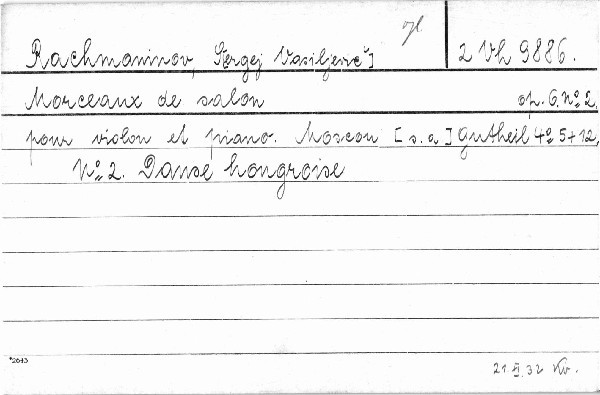 vgl.
Rachmaninov, S[ergej Vasiljevič] 2 Vh 9886.
Morceaux de salon op. 6. No 2.
pour violon et piano. Moscou [s. a] Gutheil 4º 5+12.
No 2. Danse hongroise
*2643 21.VI.32 Kv.